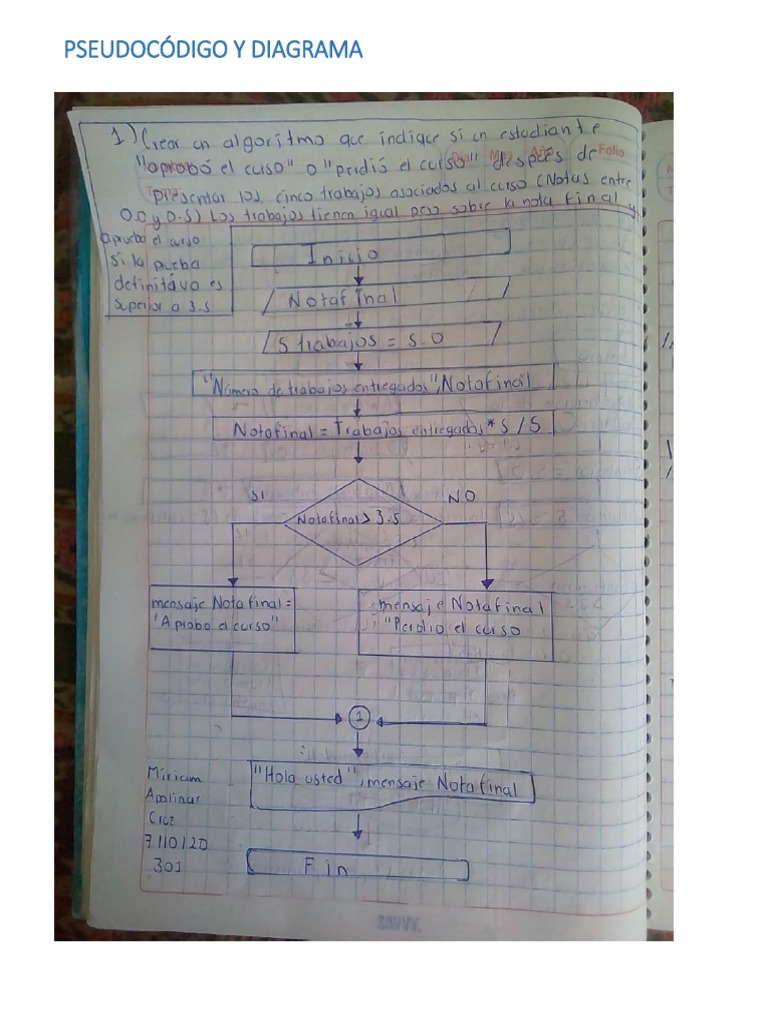 PSEUDOCÓDIGO Y DIAGRAMA
1) Crear un algoritmo que indique si un estudiante
"aprobó el curso" o "perdió el curso" despues de
presentar los cinco trabajos asociados al curso (Notas entre
0.0 y 0.5) Los trabajos tienen igual peso sobre la nota final y
Aprueba el curso
si la prueba
definitáva es
superior a 3.5
Mes Año Folio
Inicio
Notafinal
5 trabajos = 5.0
"Número de trabajos entregados", Notafinal
Notafinal = Trabajos entregados * 5 / 5
SI
NO
Notafinal > 3.5
mensaje Notafinal =
"Aprobo el curso"
mensaje Notafinal
"Perdio el curso
1
"Hola usted", mensaje Notafinal
Miriam
Apolinar
Cruz
7110120
301
Fin
SAVVY.